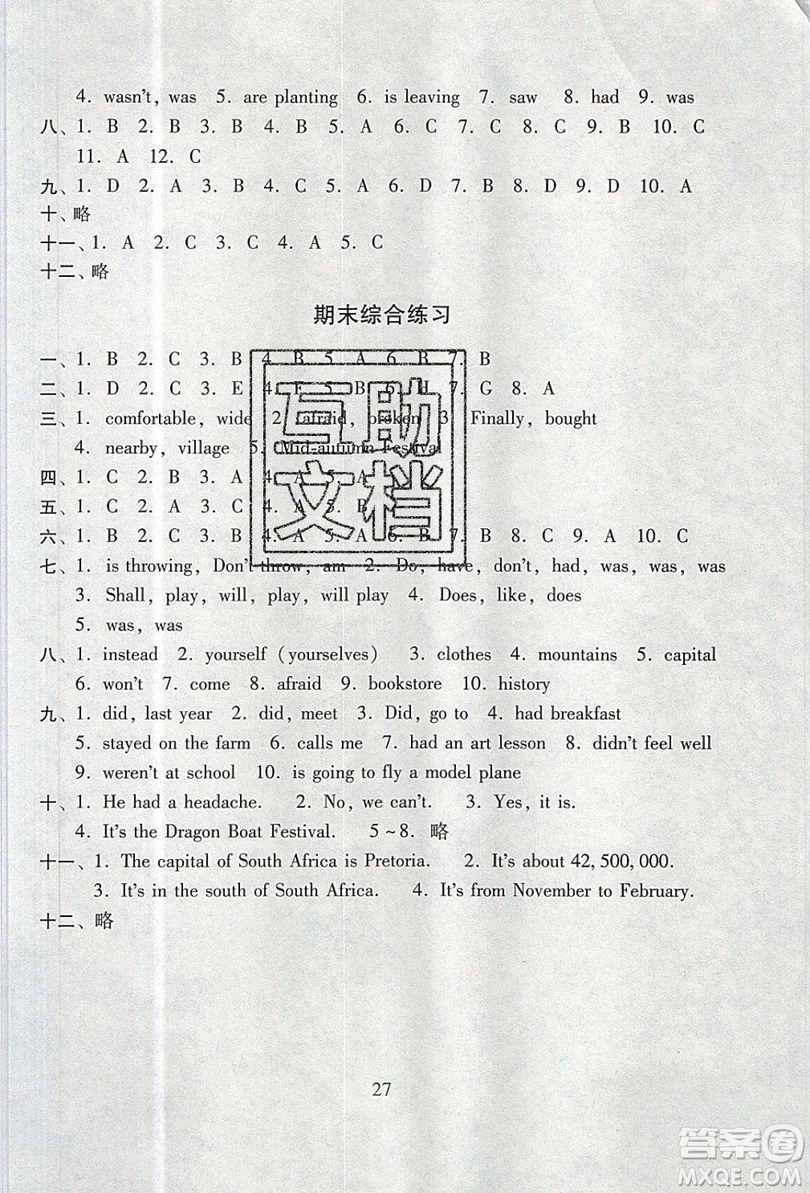 4．wasn't，was  5．are planting  6．is leaving  7．saw  8．had  9．was
八、1．B  2．B  3．B  4．B  5．A  6．C  7．C  8．C  9．B  10．C
11．A  12．C
九、1．D  2．A  3．B  4．C  5．A  6．D  7．B  8．D  9．D  10．A
十、略
十一、1．A  2．C  3．C  4．A  5．C
十二、略
期末综合练习
一、1．B  2．C  3．B  4．B  5．A  6．B  7．B
二、1．D  2．C  3．E  4．F  5．B  6．H  7．G  8．A
三、1．comfortable，wide  2．afraid，broken  3．Finally，bought
4．nearby，village  5．Mid-autumn Festival
四、1．C  2．B  3．A  4．A  5．A
五、1．C  2．A  3．C  4．A  5．B
六、1．B  2．C  3．B  4．A  5．A  6．B  7．B  8．C  9．A  10．C
七、1．is throwing，Don't throw，am  2．Do，have，don't，had，was，was，was
3．Shall，play，will，play，will play  4．Does，like，does
5．was，was
八、1．instead  2．yourself（yourselves）  3．clothes  4．mountains  5．capital
6．won't  7．come  8．afraid  9．bookstore  10．history
九、1．did，last year  2．did，meet  3．Did，go to  4．had breakfast
5．stayed on the farm  6．calls me  7．had an art lesson  8．didn't feel well
9．weren't at school  10．is going to fly a model plane
十、1．He had a headache.  2．No，we can't.  3．Yes，it is.
4．It's the Dragon Boat Festival.  5～8．略
十一、1．The capital of South Africa is Pretoria.  2．It's about 42,500,000.
3．It's in the south of South Africa.  4．It's from November to February.
十二、略
互助
文档
27
答案圈
MXQE.COM